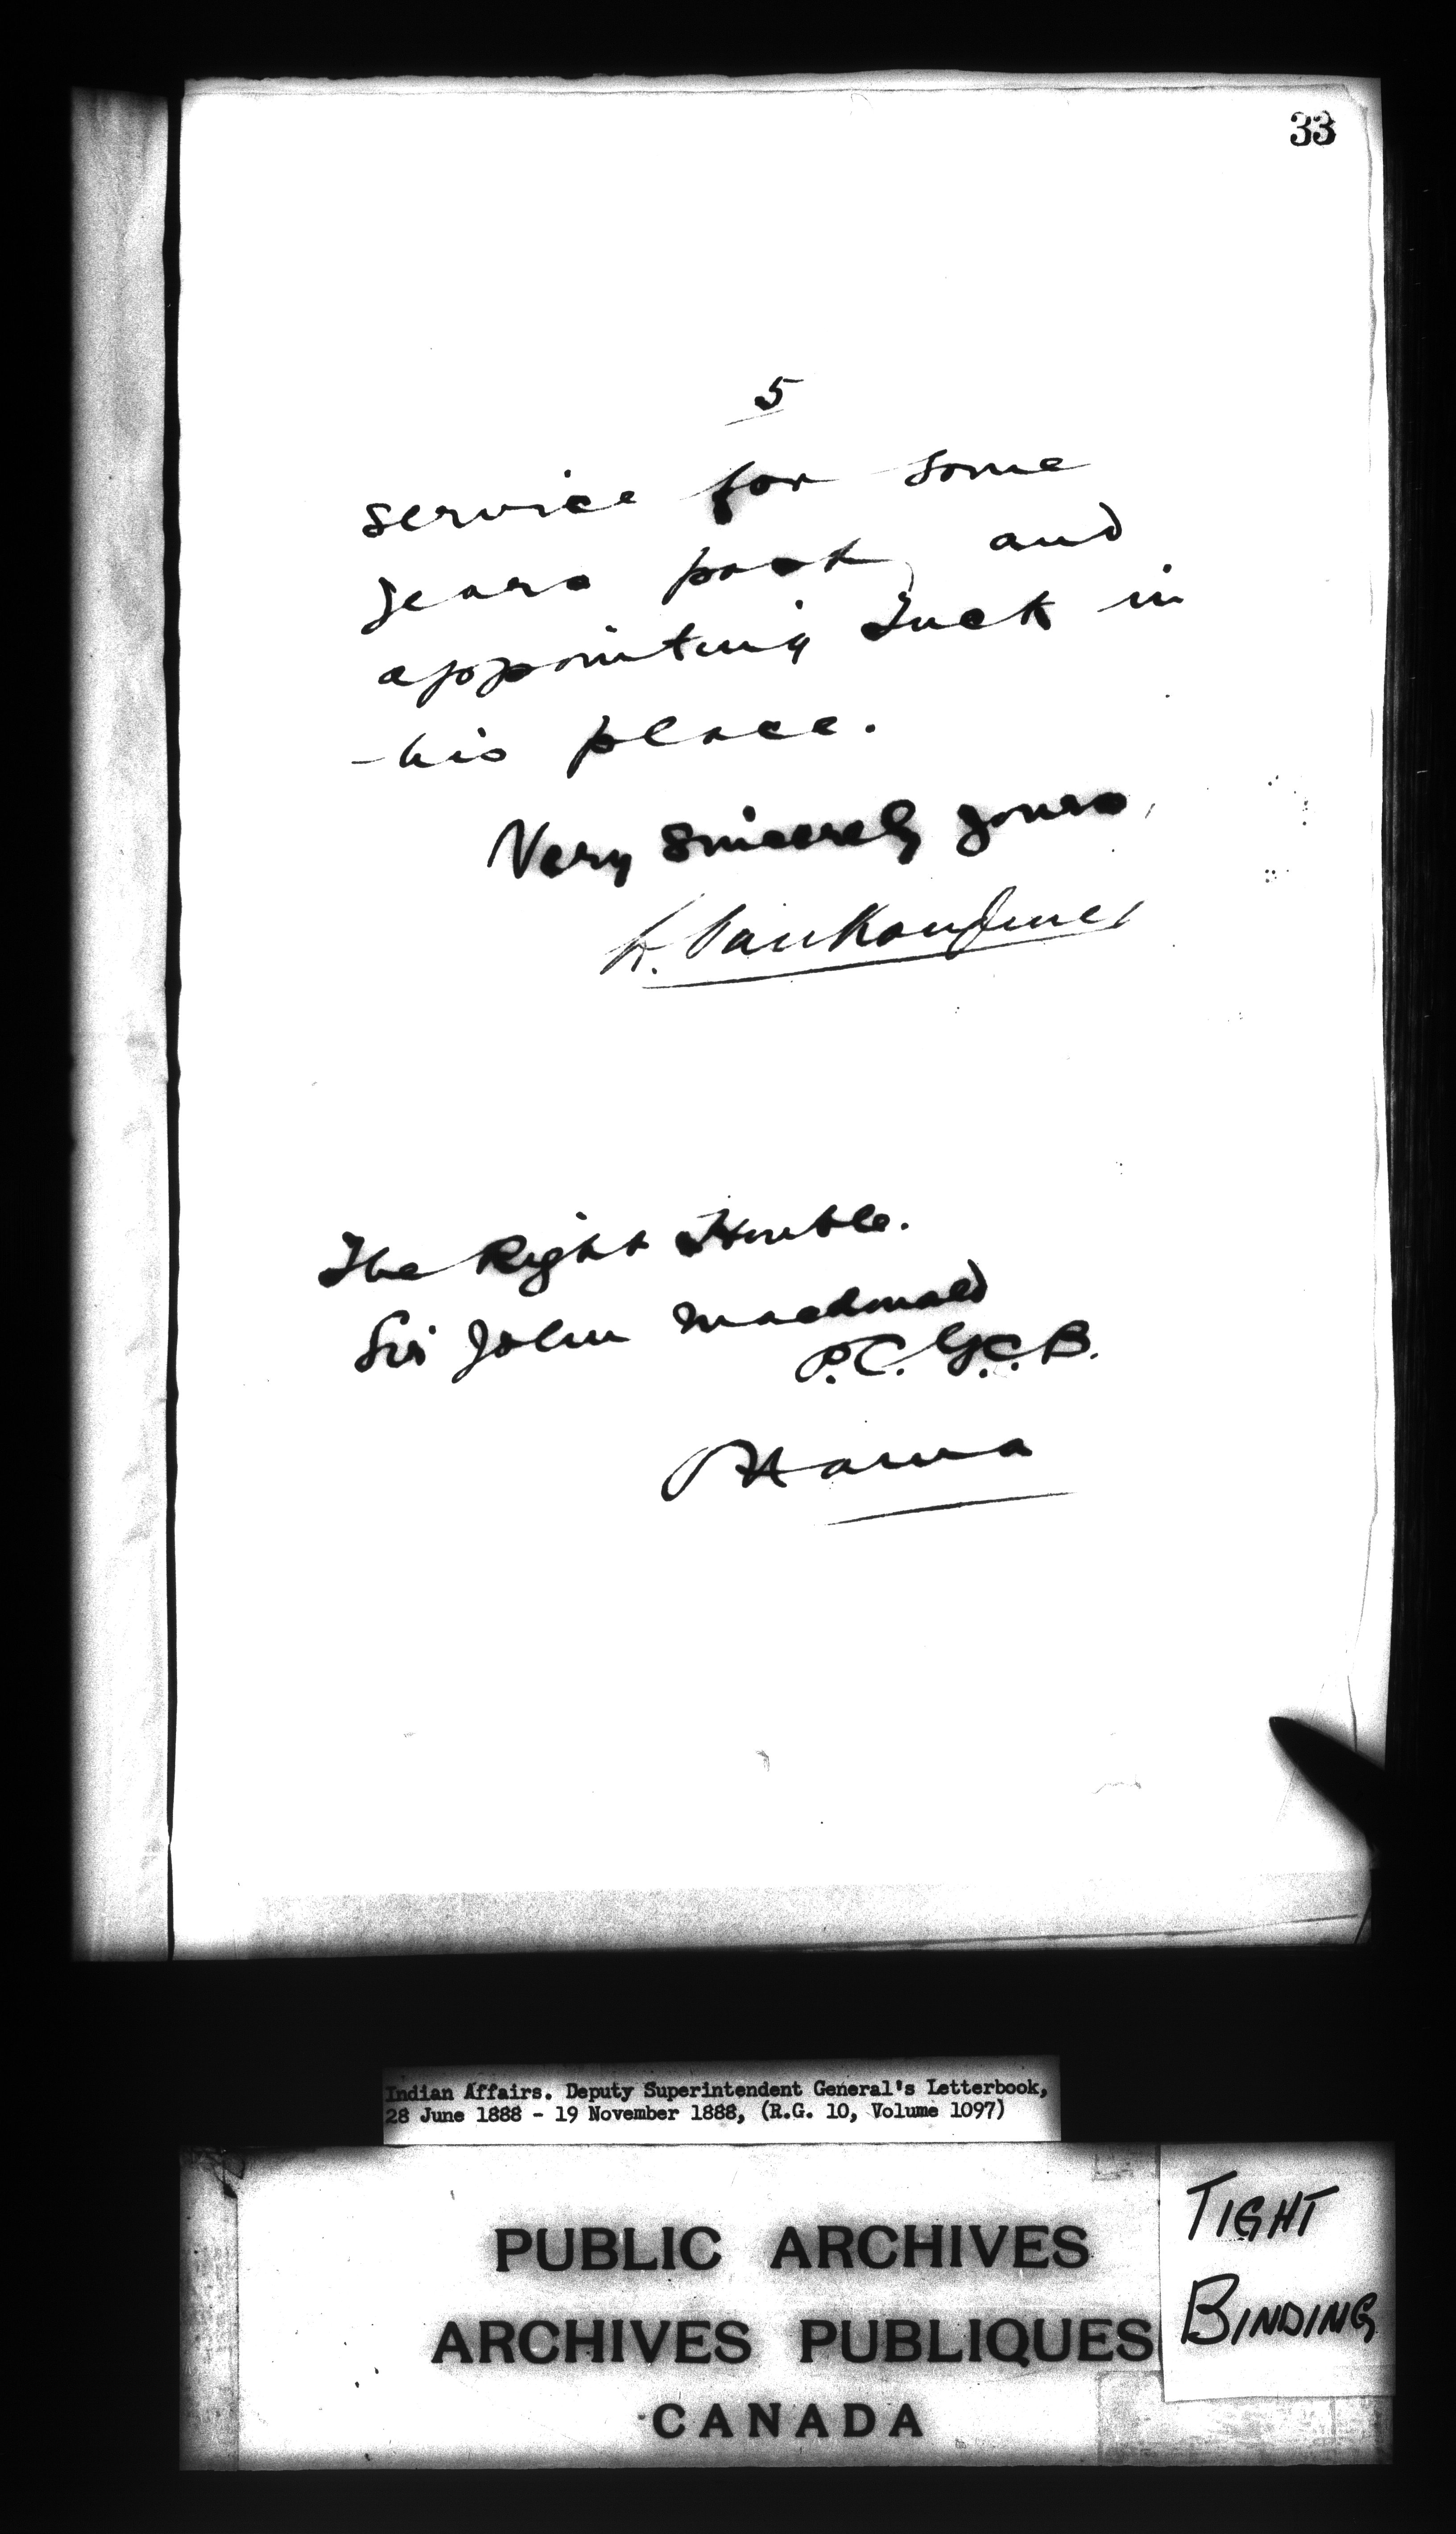 33
5
service for some
years past, and
appointing Tuck in
his place.
Very sincerely yours,
L. VanKoughnet
The Right Honble.
Sir John Macdonald
P.C. G.C.B.
Ottawa
Indian Affairs. Deputy Superintendent General's Letterbook,
28 June 1888 - 19 November 1888, (R.G. 10, Volume 1097)
PUBLIC ARCHIVES
ARCHIVES PUBLIQUES
CANADA
TIGHT
BINDING